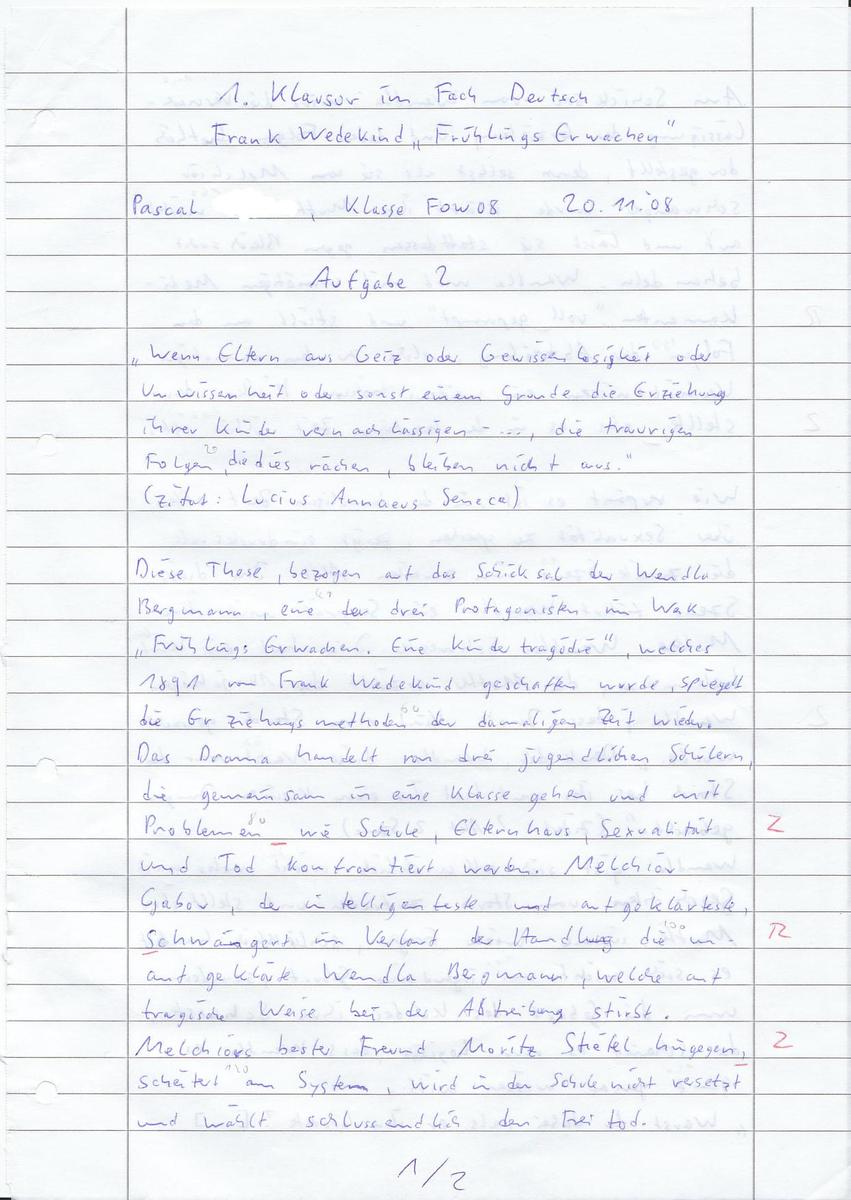 1. Klausur im Fach Deutsch
Frank Wedekind „Frühlings Erwachen"
Pascal , Klasse FOW08 20.11.'08
Aufgabe 2
„Wenn Eltern aus Geiz oder Gewissenlosigkeit oder
Unwissenheit oder sonst einem Grunde die Erziehung
ihrer Kinder vernachlässigen - ..., die traurigen
Folgen, die dies rächen, bleiben nicht aus."
20
(Zitat: Lucius Annaeus Seneca)
Diese These, bezogen auf das Schicksal der Wendla
Bergmann, eine der drei Protagonisten im Werk
„Frühlings Erwachen. Eine Kindertragödie", welches
1891 von Frank Wedekind geschaffen wurde, spiegelt
die Erziehungsmethoden der damaligen Zeit wieder.
60
Das Drama handelt von drei jugendlichen Schülern,
die gemeinsam in eine Klasse gehen und mit
Problemen wie Schule, Elternhaus, Sexualität Z
80
und Tod konfrontiert werden. Melchior
Gabor, der intelligenteste und aufgeklärteste,
Schwängert im Verlauf der Handlung die un- R
100
aufgeklärte Wendla Bergmann, welche auf
tragische Weise bei der Abtreibung stirbt.
Melchiors bester Freund Moritz Stiefel hingegen, Z
scheitert am System, wird in der Schule nicht versetzt
120
und wählt schlussendlich den Freitod.
1/2